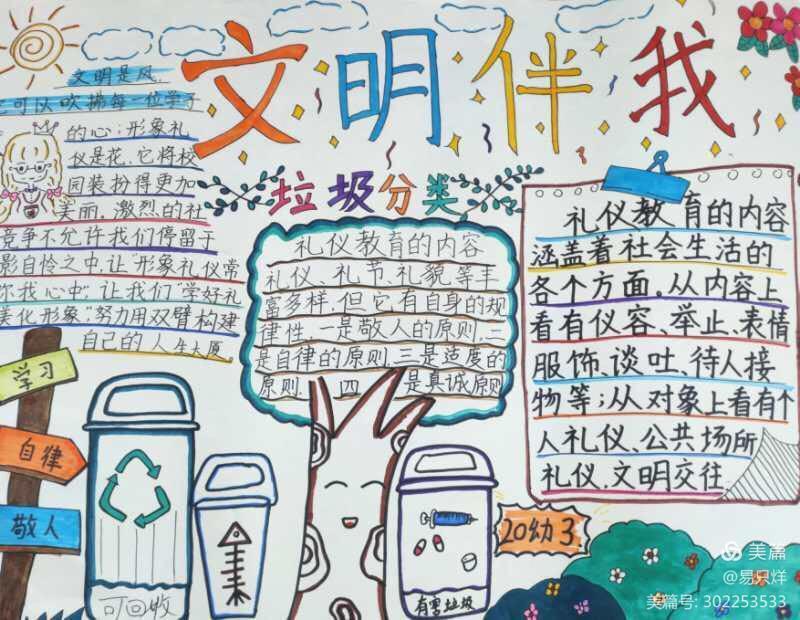 文明伴我
文明是风,
它可以吹拂每一位学子
的心;形象礼
仪是花,它将校
园装扮得更加
美丽。激烈的社
竞争不允许我们停留于
影自怜之中.让"形象礼仪常
你我心中",让我们"学好礼
美化形象"努力用双臂构建
自己的人生大厦。
垃圾分类
礼仪教育的内容
礼仪、礼节、礼貌等丰
富多样,但它有自身的规
律性,一是敬人的原则,二
是自律的原则,三是适度的
原则, 四 是真诚原则
礼仪教育的内容
涵盖着社会生活的
各个方面。从内容上
看有仪容、举止、表情
服饰、谈吐、待人接
物等;从对象上看有个
人礼仪、公共场所
礼仪、文明交往
学习
自律
敬人
可回收
有害垃圾
20幼3
美篇
@易只烊
美篇号: 302253533